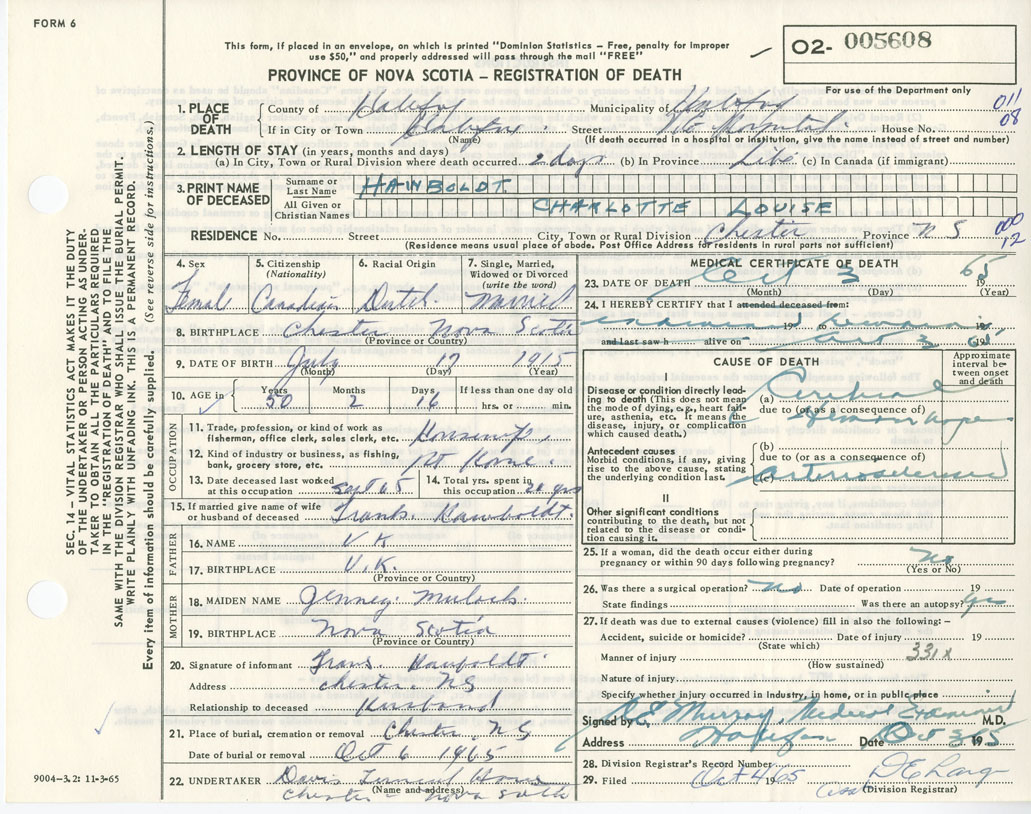 FORM 6
This form, if placed in an envelope, on which is printed "Dominion Statistics – Free, penalty for improper
use $50," and properly addressed will pass through the mail "FREE"
PROVINCE OF NOVA SCOTIA – REGISTRATION OF DEATH
O2- 005608
For use of the Department only
011
08
1. PLACE OF DEATH
County of Halifax Municipality of Halifax
If in City or Town Halifax Street Hospital House No.
(Name) (If death occurred in a hospital or institution, give the name instead of street and number)
2. LENGTH OF STAY (in years, months and days)
(a) In City, Town or Rural Division where death occurred 2 days (b) In Province Life (c) In Canada (if immigrant)
3. PRINT NAME OF DECEASED
Surname or Last Name HAWBOLDT
All Given or Christian Names CHARLOTTE LOUISE
RESIDENCE No. Street City, Town or Rural Division Chester Province N S
(Residence means usual place of abode. Post Office Address for residents in rural parts not sufficient)
000
12
4. Sex Female
5. Citizenship (Nationality) Canadian
6. Racial Origin Dutch
7. Single, Married, Widowed or Divorced (write the word) Married
8. BIRTHPLACE Chester Nova Scotia
(Province or Country)
9. DATE OF BIRTH July 17 1915
(Month) (Day) (Year)
10. AGE in Years 50 Months 2 Days 16 If less than one day old hrs. or min.
OCCUPATION
11. Trade, profession, or kind of work as
fisherman, office clerk, sales clerk, etc. Housewife
12. Kind of industry or business, as fishing,
bank, grocery store, etc. At Home
13. Date deceased last worked
at this occupation Sept 65
14. Total yrs. spent in
this occupation yrs
15. If married give name of wife
or husband of deceased Frank Hawboldt
FATHER
16. NAME U K
17. BIRTHPLACE U.K.
(Province or Country)
MOTHER
18. MAIDEN NAME Jenney
19. BIRTHPLACE Nova Scotia
(Province or Country)
20. Signature of informant Frank Hawboldt
Address Chester NS
Relationship to deceased Husband
21. Place of burial, cremation or removal Chester, NS
Date of burial or removal Oct 6 1965
22. UNDERTAKER Davis Funeral Home
(Name and address)
Chester Nova Scotia
MEDICAL CERTIFICATE OF DEATH
23. DATE OF DEATH Oct 3 1965
(Month) (Day) (Year)
24. I HEREBY CERTIFY that I attended deceased from:
19 to 19
and last saw h alive on Oct 3
CAUSE OF DEATH
Approximate interval between onset and death
I
Disease or condition directly leading
to death (This does not mean
the mode of dying, e.g., heart failure,
asthenia, etc. It means the
disease, injury, or complication
which caused death.)
(a) Cerebral
due to (or as a consequence of)
Hemorrhage
Antecedent causes
Morbid conditions, if any, giving
rise to the above cause, stating
the underlying condition last.
(b)
due to (or as a consequence of)
(c) Arteriosclerosis
II
Other significant conditions
contributing to the death, but not
related to the disease or condition
causing it.
25. If a woman, did the death occur either during
pregnancy or within 90 days following pregnancy? No
(Yes or No)
26. Was there a surgical operation? No Date of operation 19
State findings Was there an autopsy? yes
27. If death was due to external causes (violence) fill in also the following: –
Accident, suicide or homicide? Date of injury 19
(State which)
Manner of injury 331X
(How sustained)
Nature of injury
Specify whether injury occurred in industry, in home, or in public place
Signed by Murray, Medical Examiner M.D.
Address Halifax Date Oct 3 1965
28. Division Registrar's Record Number
29. Filed Oct 4 1965
(Division Registrar)
SEC. 14 – VITAL STATISTICS ACT MAKES IT THE DUTY
OF THE UNDERTAKER OR PERSON ACTING AS UNDERTAKER
TO OBTAIN ALL THE PARTICULARS REQUIRED
IN THE "REGISTRATION OF DEATH" AND TO FILE THE
SAME WITH THE DIVISION REGISTRAR WHO SHALL ISSUE THE BURIAL PERMIT.
WRITE PLAINLY WITH UNFADING INK. THIS IS A PERMANENT RECORD.
Every item of information should be carefully supplied. (See reverse side for instructions.)
9004–3.2: 11-3-65